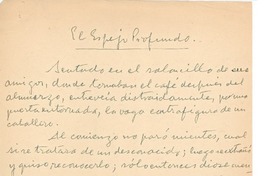 El Espejo Profundo.
Sentado en el saloncillo de sus
amigos, donde tomaban el café después del
almuerzo, entreveía distraidamente, por una
puerta entornada, la vaga contrafigura de un
caballero.
Al comienzo no paró mientes, cual
si se tratara de un desconocido; luego
y quiso reconocerlo; sólo entonces dióse cuen-